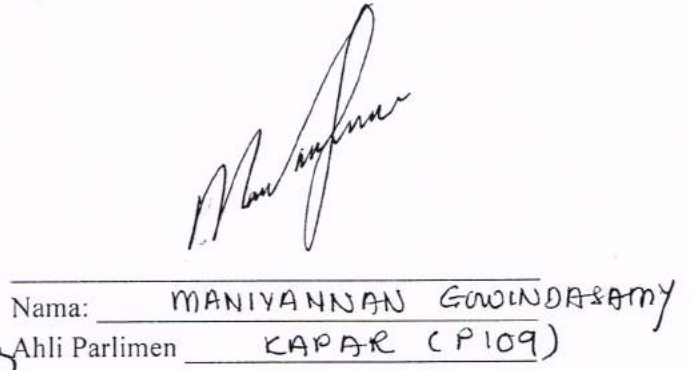 Nama: MANIVANNAN GOWINDASAMY
Ahli Parlimen KAPAR (P109)